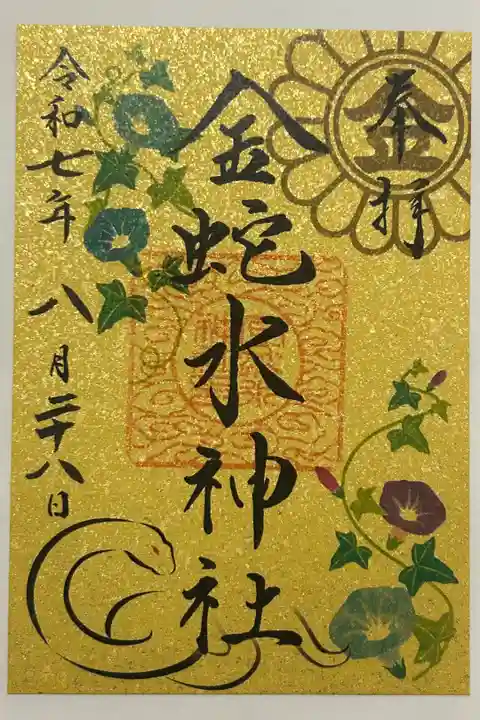 奉拝
金蛇水神社
令和七年八月二十八日